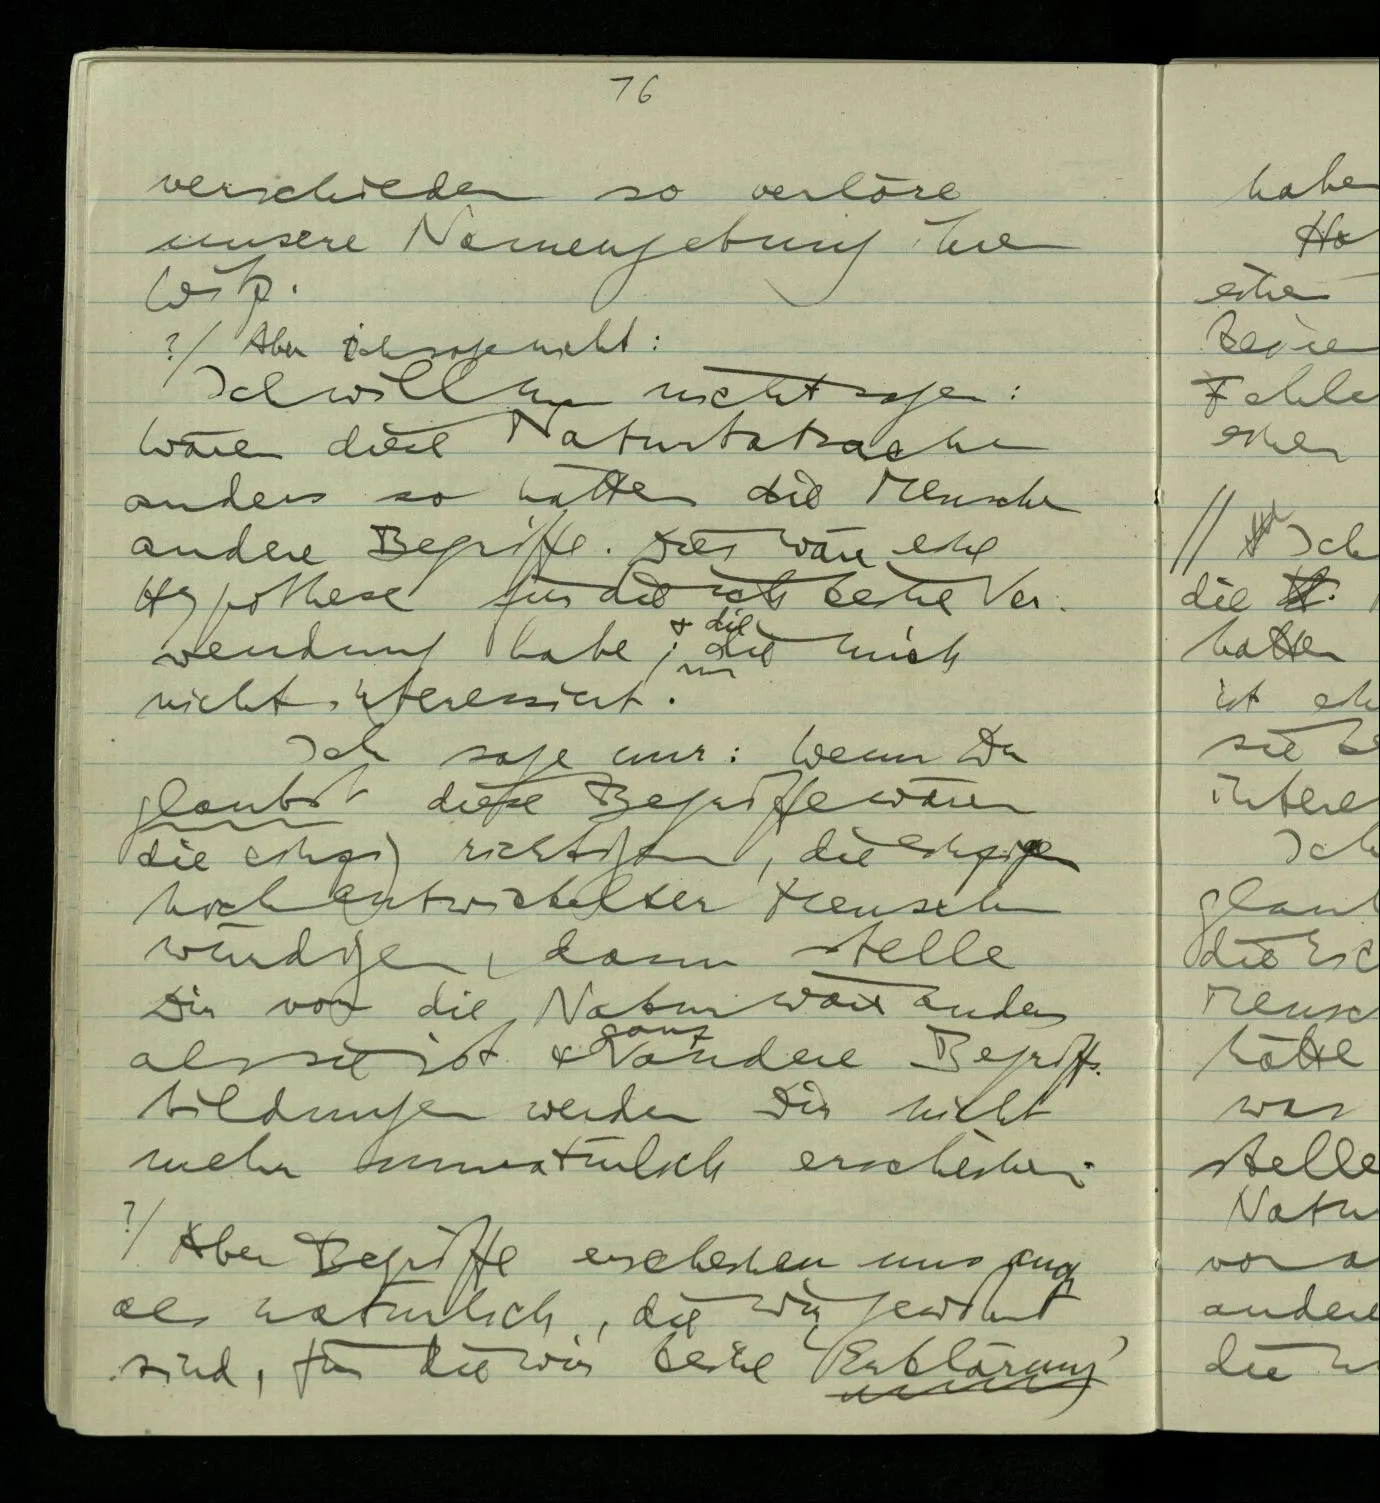 76
verschieden so verlöre
unsere Namengebung ihren
Witz.
?/ Aber ich sage nicht:
Ich will nun nicht sagen:
wären diese Naturtatsachen
anders so hätten die Menschen
andere Begriffe. Dies wäre eine
Hypothese für die ich keine Ver-
wendung habe; & die
die mich
nicht interessiert.
Ich sage nur: Wenn Du
glaubst diese Begriffe wären
die einzig richtigen, die einzigen
hochentwickelter Menschen
würdigen, dann stelle
Dir vor die Natur wäre anders
als sie ist & ganz andere Begriffs-
bildungen werden Dir nicht
mehr unnatürlich erscheinen.
?/ Aber Begriffe erscheinen uns auch
als natürlich, die wir gewöhnt
sind, für die wir keine 'Erklärung'
haben
Ha
eine
Keine
Fehle
einen
// Ich
die
hatten
ist
sie
intere
Ich
glaub
die
Mensch
hätte
was
stelle
Natur
vor a
andere
die